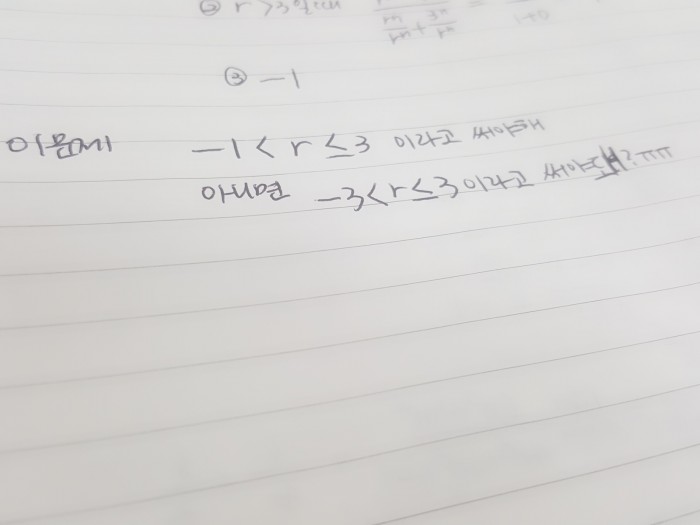 ② r>3일때 rⁿ/(rⁿ/rⁿ + 3ⁿ/rⁿ) = 1+0
③ -1
이문제 -1 < r ≤ 3 이라고 써야해
아니면 -3 < r ≤ 3 이라고 써야돼?ㅠㅠ